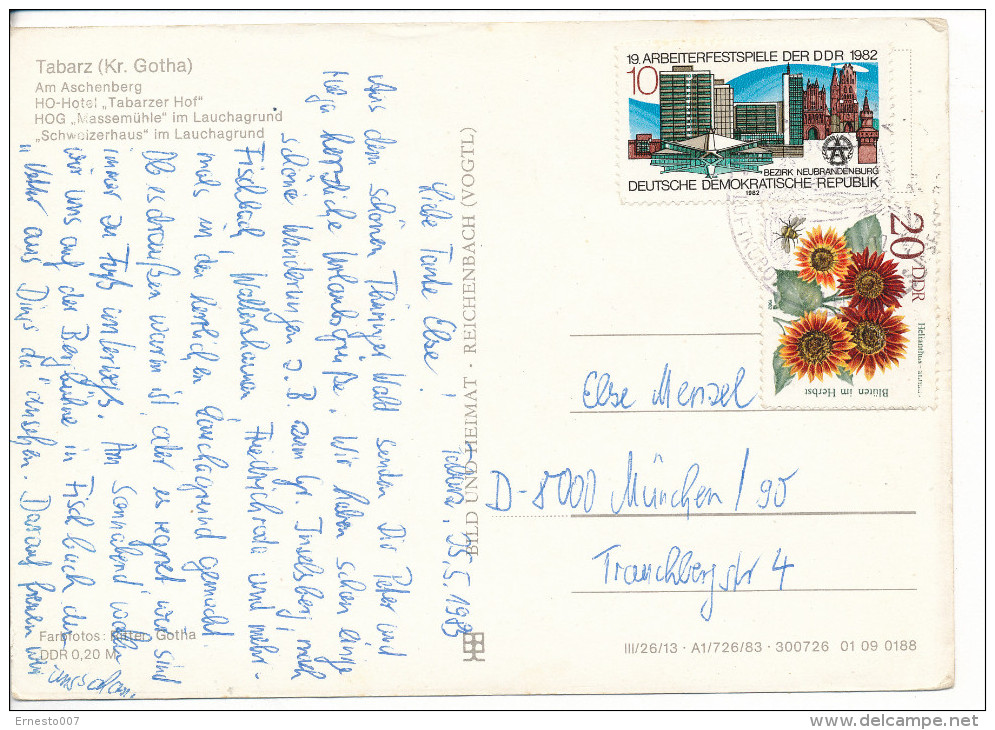 Tabarz (Kr. Gotha)
Am Aschenberg
HO-Hotel „Tabarzer Hof"
HOG „Massemühle" im Lauchagrund
„Schweizerhaus" im Lauchagrund
Tabarz, 15.5.1983
Liebe Tante Else!
Aus dem schönen Thüringer Wald senden Dir Peter und
Helga herzliche Urlaubsgrüße. Wir haben schon einige
schöne Wanderungen z. B. zum Gr. Inselsberg, nach
Fischbach, Waltershausen Friedrichroda und mehr-
mals in den herrlichen Lauchagrund gemacht
Ob es draußen warm ist, oder es regnet wir sind
immer zu Fuß unterwegs. Am Sonnabend wollen
wir uns auf der Bergbühne in Fischbach den
"Vetter aus Dingsda" ansehen. Darauf freuen wir
uns schon.
Farbfotos: Ritter, Gotha
DDR 0,20 M
BILD UND HEIMAT · REICHENBACH (VOGTL)
19. ARBEITERFESTSPIELE DER DDR 1982
10
BEZIRK NEUBRANDENBURG
DEUTSCHE DEMOKRATISCHE REPUBLIK
1982
20 DDR
Blüten im Herbst
Else Menzel
D-8000 München/90
Trauchbergstr 4
III/26/13 · A1/726/83 · 300726 01 09 0188
Ernesto007